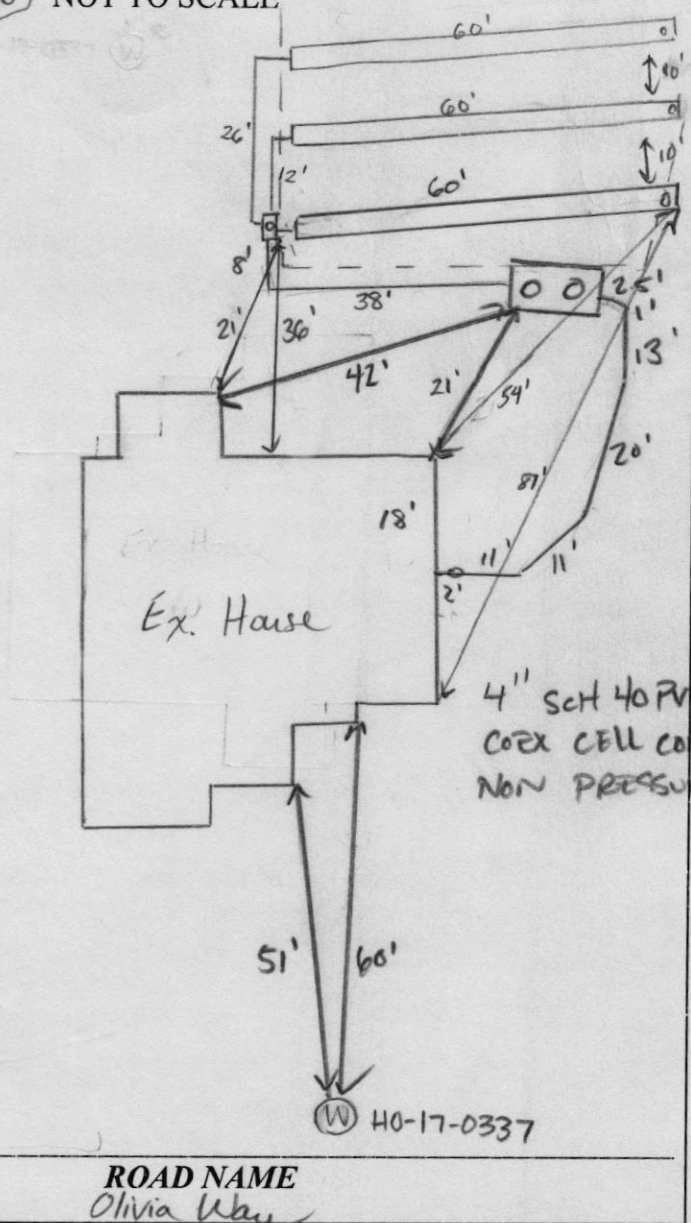 NOT TO SCALE
60'
10'
60'
26'
12'
10'
60'
8'
38'
2.5'
1'
21'
36'
13'
42'
21'
54'
20'
87'
18'
11'
11'
2'
Ex. House
Ex. House
4" SCH 40 PV
COEX CELL CO
NON PRESSU
51'
60'
W HO-17-0337
ROAD NAME
Olivia Way